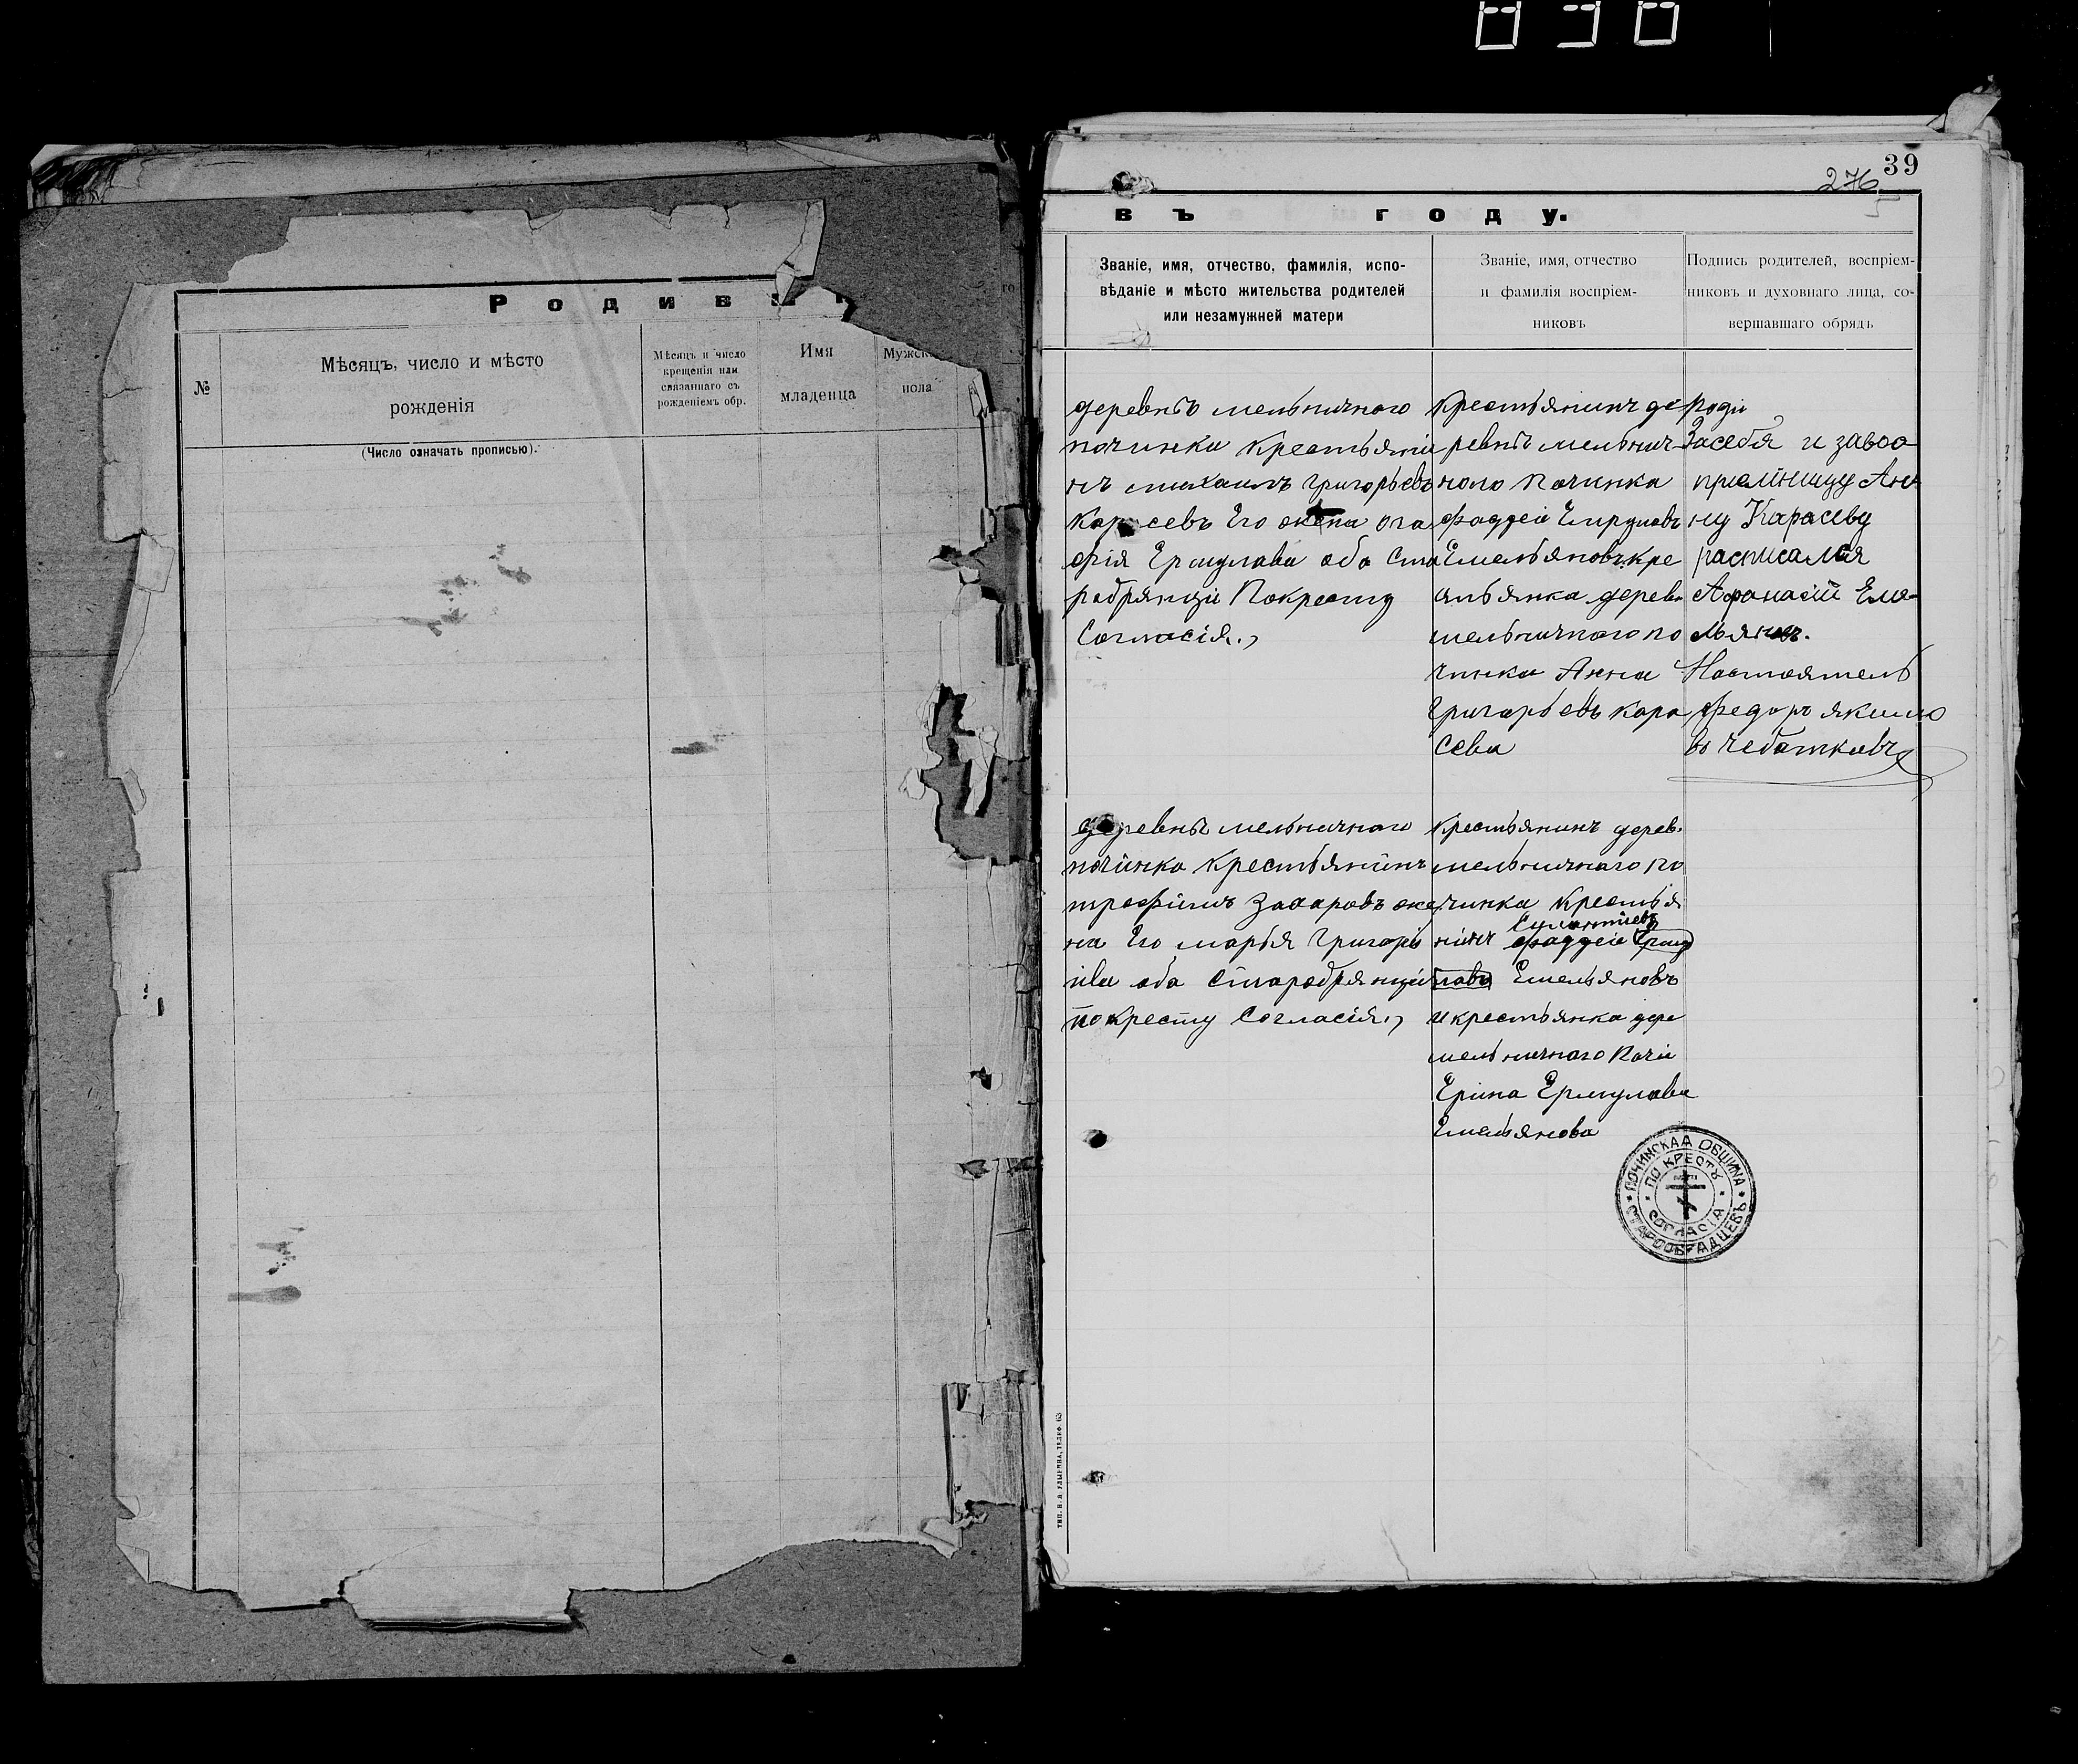 39
276
Родив
№
Мѣсяцъ, число и мѣсто
рожденія
(Число означать прописью).
Мѣсяцъ и число
крещенія или
связаннаго съ
рожденіемъ обр.
Имя
младенца
Мужск
пола
въ году.
Званіе, имя, отчество, фамилія, испо-
вѣданіе и мѣсто жительства родителей
или незамужней матери
Званіе, имя, отчество
и фамилія воспріем-
никовъ
Подпись родителей, воспріем-
никовъ и духовнаго лица, со-
вершавшаго обрядъ
деревнѣ мельничного
починка Крестьяни
нъ михаилъ Григорьевъ
Его жена ога
фія Ермулава оба Ста
робрянци Покресту
Согласія.,
Крестьянинъ де
ревнѣ мельнич
ного Починка
Фаддеі
Емельяновъ кре
стьянка дерев
мельничного по
чинка Анна
Григорьевъ Кара
сева
Роди
Засебя и завос
приемницу Ан
ну Карасеву
расписался
Афанасій Еме
льяновъ.
Настоятель
Федоръ якимо
въ Чебатковъ
деревнѣ мельничного
почінка Крестьянінъ
трофімъ Захаровъ же
на Его марья Григорь
ива оба Старобрянци
покресту Согласія.,
Крестьянинъ дерев.
мельничного по
чинка Крестья
нінъ фаддеіе Ерму
лавъ Емельяновъ
и крестьянка дере
мельничного Почи
Еріна Ермулава
Емельянова
ПОЧИНСКАЯ ОБЩИНА
СТАРООБРЯДЦЕВЪ
ПО КРЕСТУ
СОГЛАСІЯ